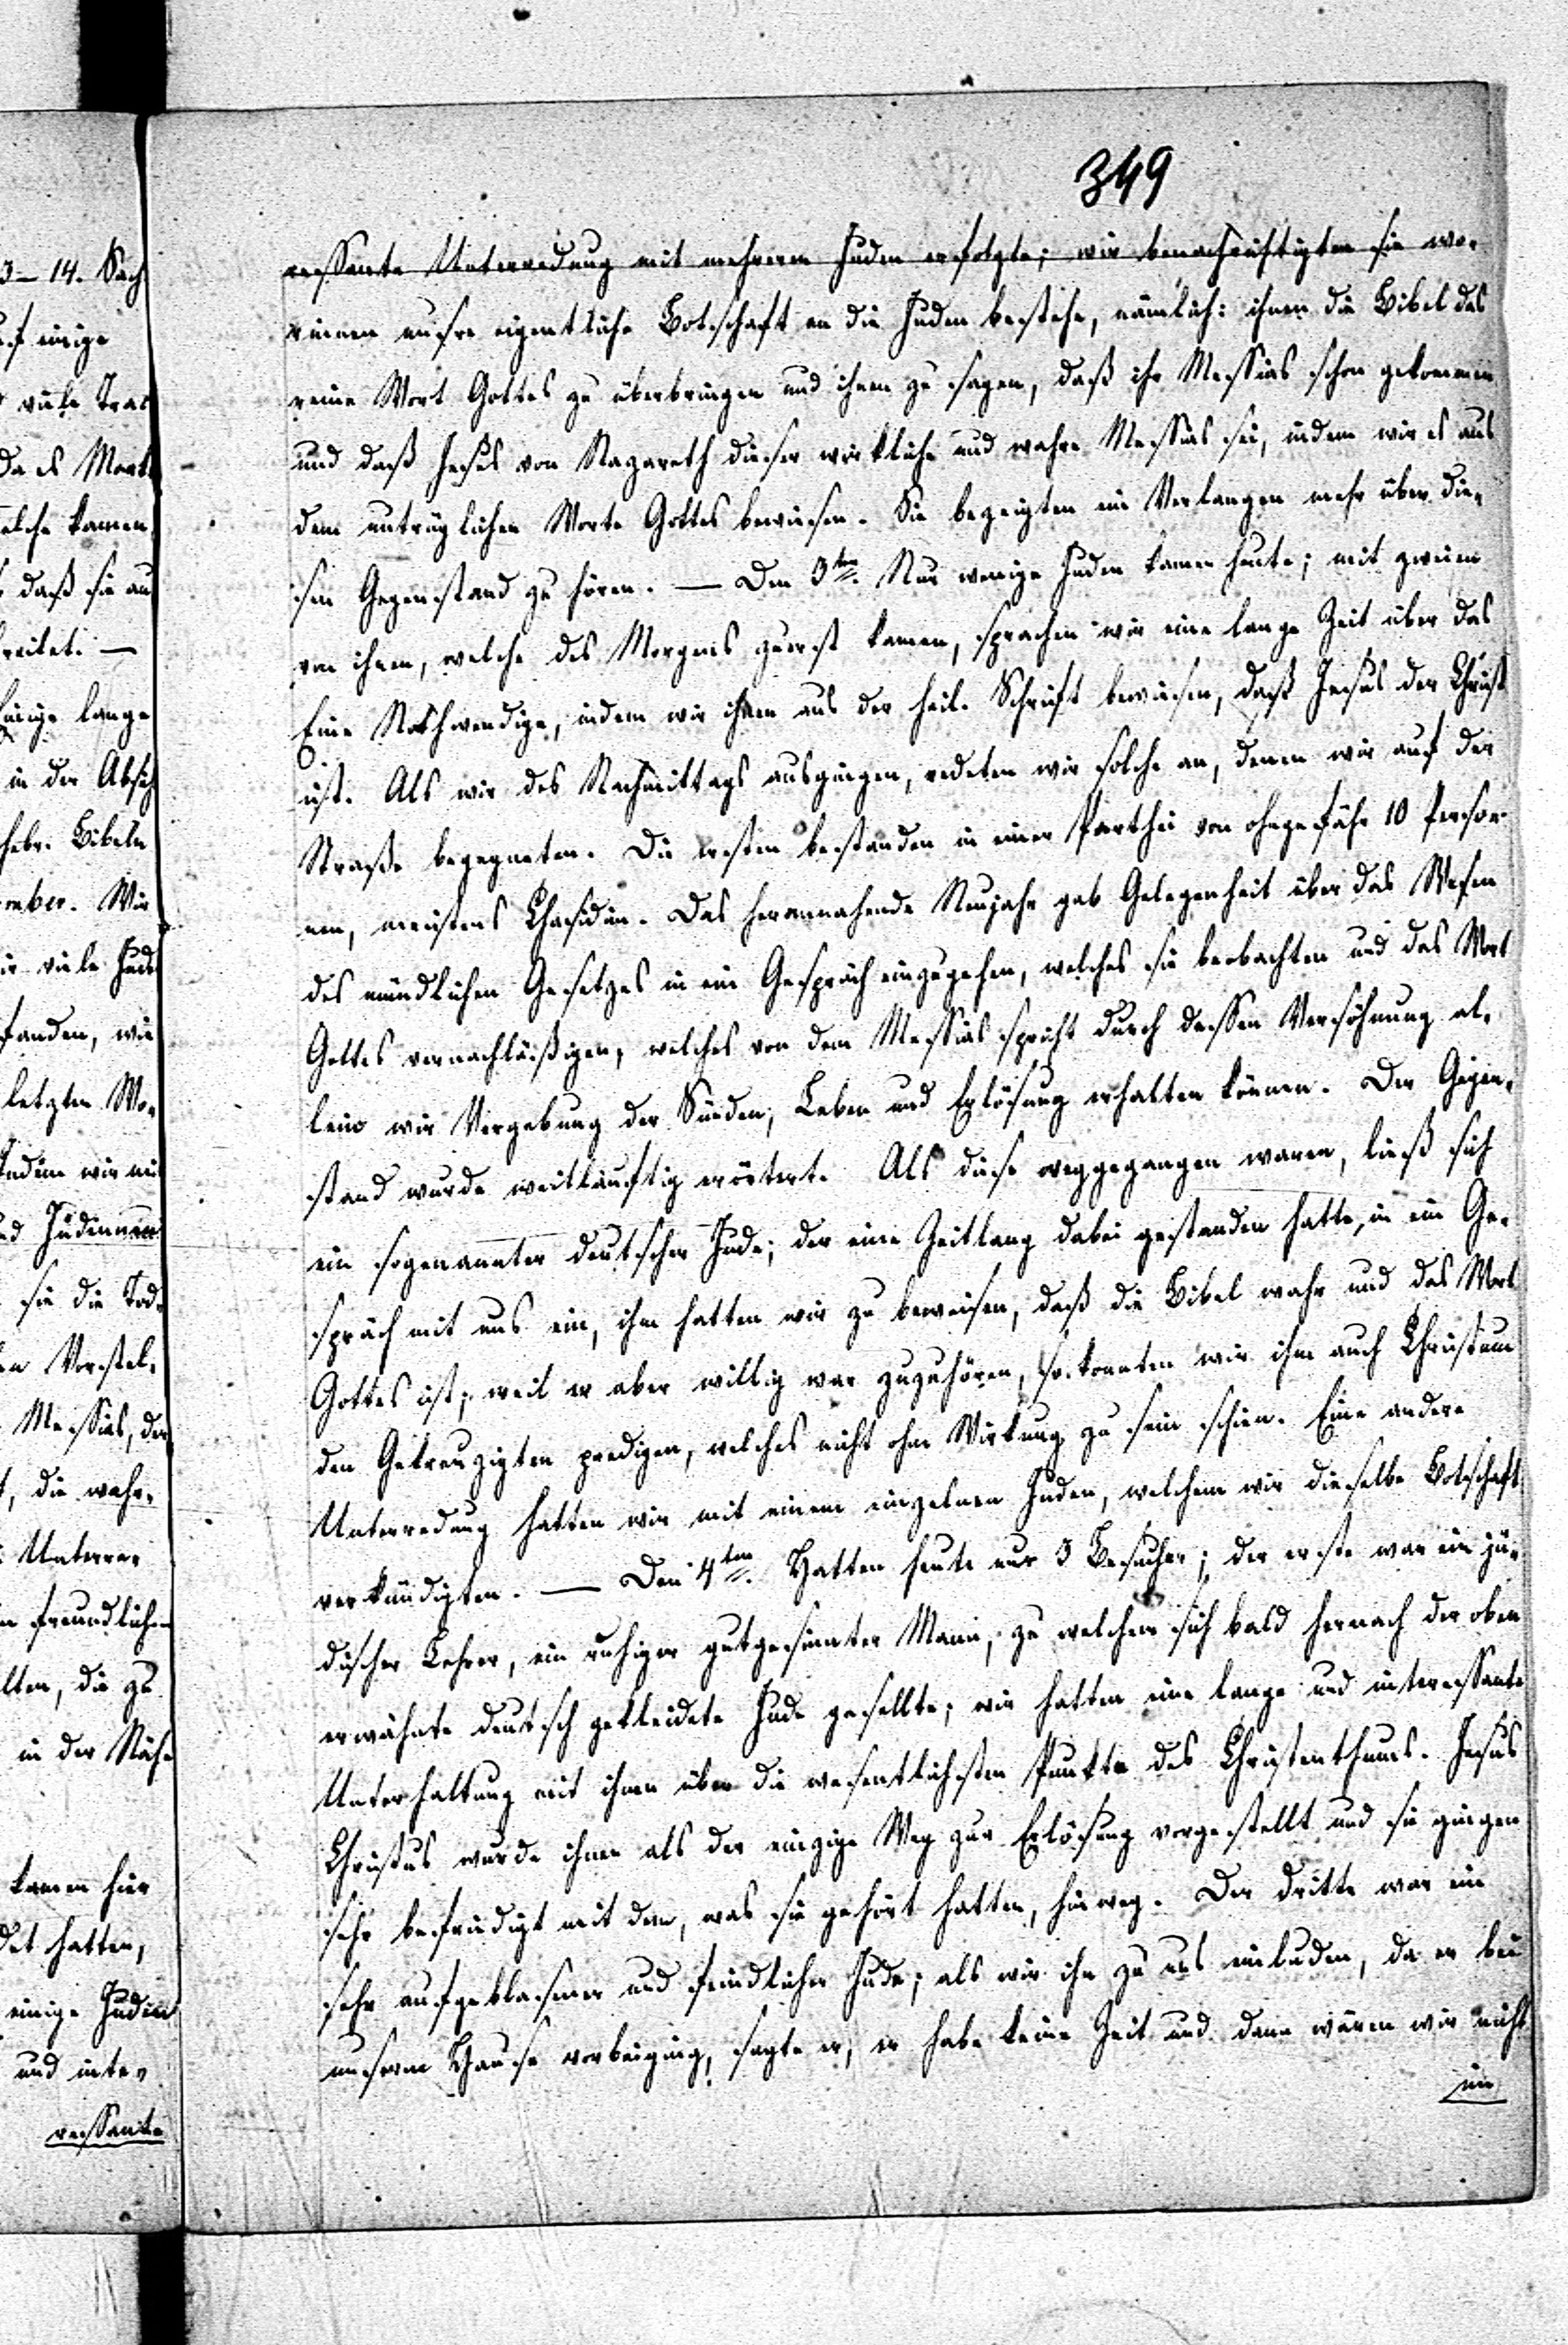 349
ressante Unterredung mit mehrern Juden erfolgte; wir benachrichtigten sie wo-
rinnen unsre eigentliche Botschaft an die Juden bestehe, nämlich: ihnen die Bibel das
reine Wort Gottes zu überbringen und ihnen zu sagen, daß ihr Messias schon gekommen
und daß Jesus von Nazareth dieser wirkliche und wahre Messias sei, indem wir es aus
dem untrüglichen Worte Gottes bewiesen. Sie bezeigten ein Verlangen mehr über die-
sen Gegenstand zu hören. — Den 3ten. Nur wenige Juden kamen heute; mit zweien
von ihnen, welche des Morgens zuerst kamen, sprachen wir eine lange Zeit über das
Eine Nothwendige, indem wir ihnen aus der heil. Schrift bewiesen, daß Jesus der Christ
ist. Als wir des Nachmittags ausgingen, redeten wir solche an, denen wir auf der
Straße begegneten. Die ersten bestanden in einer Parthei von ohngefähr 10 Perso-
nen, meistens Chasidim. Das herannahende Neujahr gab Gelegenheit über das Wesen
des mündlichen Gesetzes in ein Gespräch einzugehen, welches sie beobachten und das Wort
Gottes vernachläißigen, welches von dem Messias spricht durch dessen Versöhnung al-
lein wir Vergebung der Sünden, Leben und Erlösung erhalten können. Der Gegen-
stand wurde weitläuftig erörtert. Als diese weggegangen waren, ließ sich
ein sogenannter deutscher Jude; der eine Zeitlang dabei gestanden hatte, in ein Ge-
spräch mit uns ein, ihm hatten wir zu beweisen, daß die Bibel wahr und das Wort
Gottes ist; weil er aber willig war zuzuhören, so konnten wir ihm auch Christum
den Gekreuzigten predigen, welches nicht ohne Wirkung zu sein schien. Eine andere
Unterredung hatten wir mit einem einzelnen Juden, welchem wir dieselbe Botschaft
verkündigten. — Den 4ten. Hatten heute nur 3 Besucher; der erste war ein jü-
discher Lehrer, ein ruhiger gutgesinnter Mann, zu welchem sich bald hernach der oben
erwähnte deutsch gekleidete Jude gesellte; wir hatten eine lange und interessante
Unterhaltung mit ihnen über die wesentlichsten Punkte des Christenthums. Jesus
Christus wurde ihnen als der einzige Weg zur Erlösung vorgestellt und sie gingen
sehr befriedigt mit dem, was sie gehört hatten, hinweg. Der dritte war ein
sehr aufgeblasener und feindlicher Jude; als wir ihn zu uns einluden, da er bei
unserm Hause vorbeiging, sagte er, er habe keine Zeit und dann wären wir nicht
im
3–14. Sach
einige
viele
da es
kamen
daß sie
lange
in der Absich
hebr. Bibeln
ember. Wir
viele Jude
fanden, wie
letzten Wo-
Indem wir
Jüdinnen
sie die
Vorstel-
Messias, der
die wahr-
Unterre-
freundlichen
die zu
in der Nähe
kamen hier
hatten,
einige Juden
und inte-
ressante